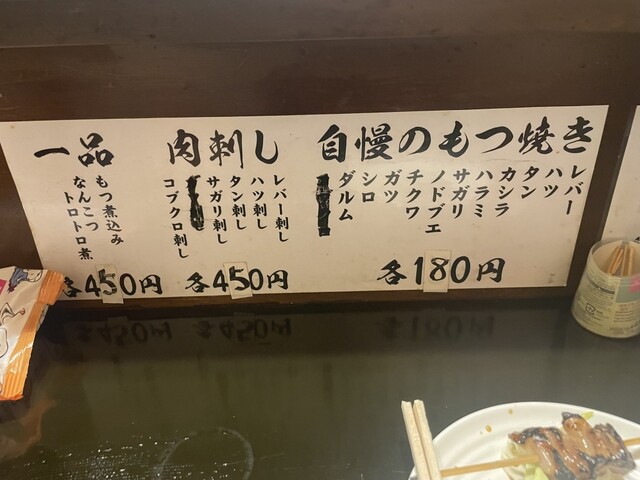 自慢のもつ焼き
レバー
ハツ
タン
カシラ
ハラミ
サガリ
ノドブエ
チクワ
ガツ
シロ
ダルム
各180円
肉刺し
レバー刺し
ハツ刺し
タン刺し
サガリ刺し
コブクロ刺し
各450円
一品
もつ煮込み
なんこつ
トロトロ煮
各450円